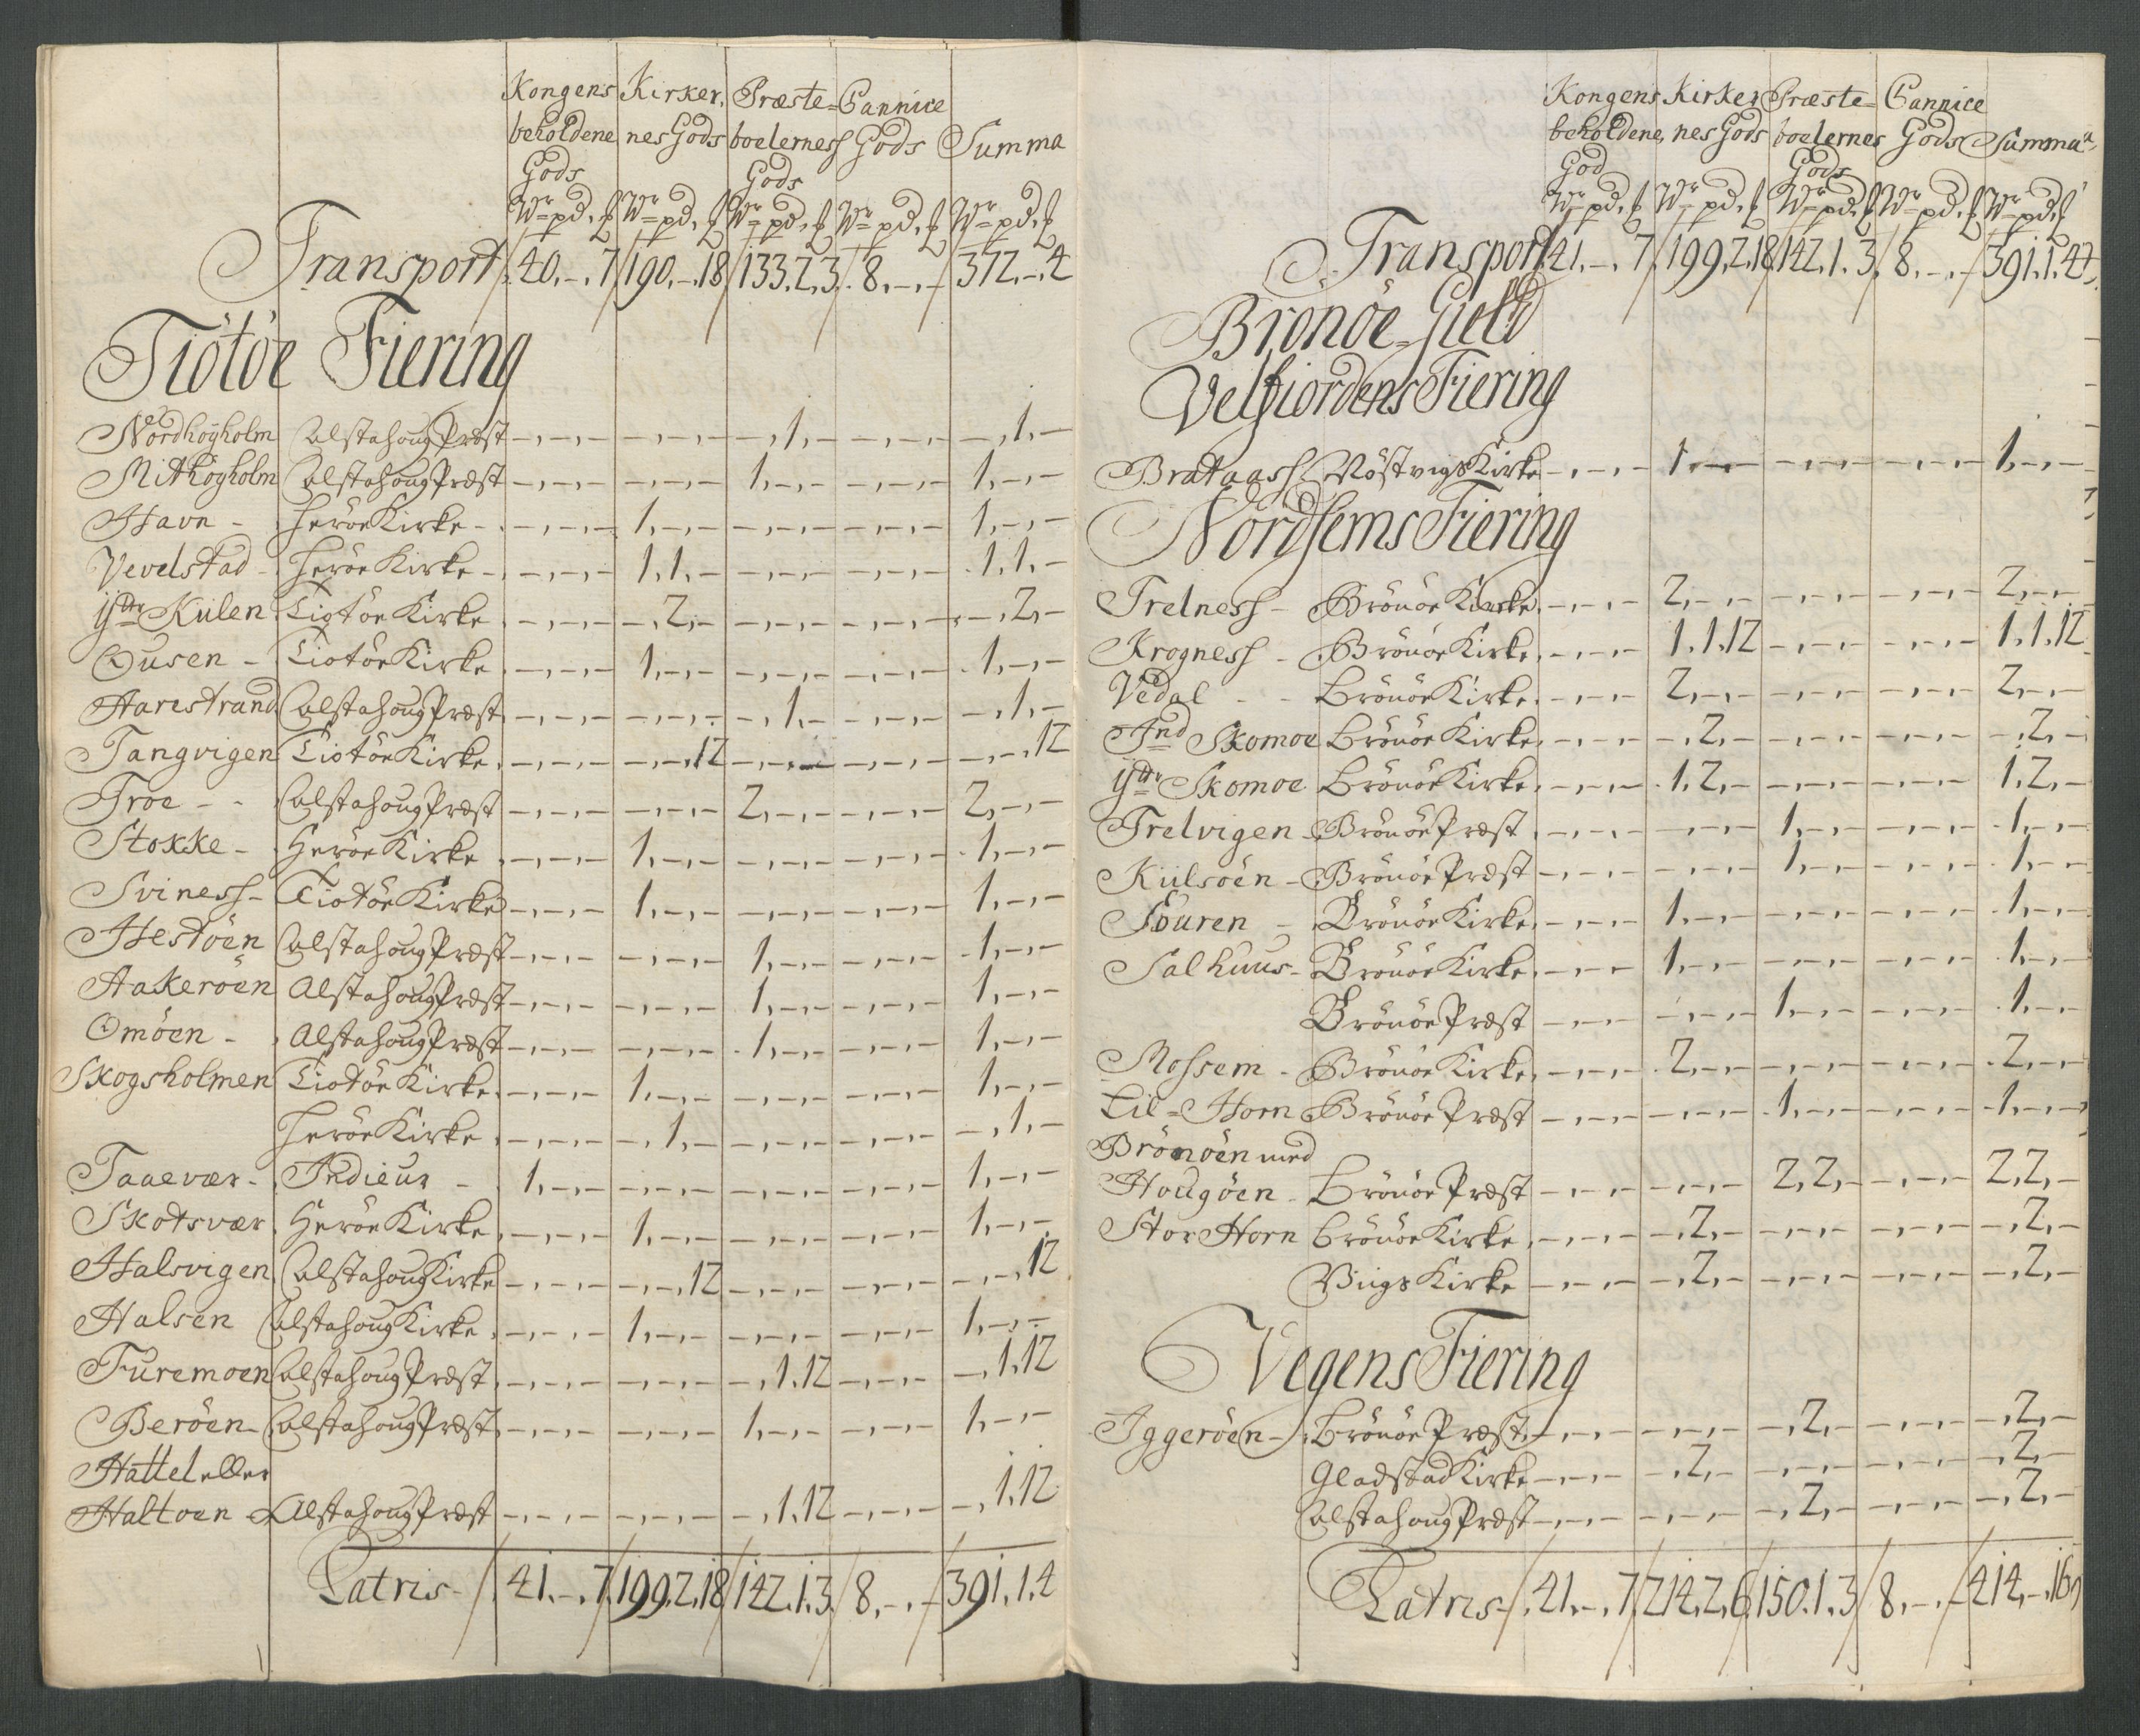 Kongens Kirker, Præste= Cannice
beholdene nes Gods boelerness Gods Summa
Gods Gods
Wr pd, Wr pd, Wr pd, Wr pd, Wr pd,
Transport 40.-.7 190.-.18 133.2.3. 8.-.- 372.-.4
Tiötöe Fiering
Nordhöÿholm Alstahoug Præst -.-.- -.-.- -.1.- -.-.- -.1.-
Mithöÿholm Alstahoug Præst -.-.- -.-.- 1.-.- -.-.- 1.-.-
Havn - Heröe Kirke - -.-.- 1.-.- -.-.- -.-.- 1.-.-
Vevelstad - Heröe Kirke - -.-.- 1.1.- -.-.- -.-.- 1.1.-
ÿdtr Kulen Tiotöe Kirke -.-.- -.2.- -.-.- -.-.- -.2.-
Ousen - Tiotöe Kirke -.-.- 1.-.- -.-.- -.-.- 1.-.-
Harestrand Alstahoug Præst -.-.- -.-.- -.1.- -.-.- -.1.-
Tangvigen Tiotöe Kirke -.-.- -.-.12 -.-.- -.-.- -.-.12
Troe - - Alstahoug Præst -.-.- -.-.- 2.-.- -.-.- 2.-.-
Stokke - Heröe Kirke -.-.- 1.-.- -.-.- -.-.- 1.-.-
Sviness - Tiotöe Kirke -.-.- 1.-.- -.-.- -.-.- 1.-.-
Hestöen Alstahoug Præst -.-.- -.-.- 1.-.- -.-.- 1.-.-
Aakeröen Alstahoug Præst -.-.- -.-.- 1.-.- -.-.- 1.-.-
Omöen - Alstahoug Præst -.-.- -.-.- 1.-.- -.-.- 1.-.-
Skogsholmen Tiotöe Kirke -.-.- 1.-.- -.-.- -.-.- 1.-.-
Heröe Kirke -.-.- -.1.- -.-.- -.-.- -.1.-
Taaevær - Indieur - 1.-.- -.-.- -.-.- -.-.- 1.-.-
Skotsvær Heröe Kirke -.-.- 1.-.- -.-.- -.-.- 1.-.-
Halsvigen Alstahoug Kirke -.-.- -.-.12 -.-.- -.-.- -.-.12
Halsen Alstahoug Kirke -.-.- 1.-.- -.-.- -.-.- 1.-.-
Furemoen Alstahoug Præst -.-.- -.-.- -.1.12 -.-.- -.1.12
Beröen - Alstahoug Præst -.-.- -.-.- 1.-.- -.-.- 1.-.-
Hattel eller
Haltoen Alstahoug Præst -.-.- -.-.- -.1.12 -.-.- -.1.12
Latris - 41.-.7. 199.2.18 142.1.3. 8.-.- 391.1.4
Kongens Kirker Præste= Cannice
beholdene, nes Gods boelernes Gods Summa
God Gods
Wr pd, Wr pd, Wr pd, Wr pd, Wr pd,
Transport 41.-.7. 199.2.18 142.1.3. 8.-.- 391.1.4
Brönöe=Gield
Velfiordens Fiering
Brataass Nöstvigs Kirke -.-.- 1.-.- -.-.- -.-.- 1.-.-
Nordhems Fiering
Trelness - Brönöe Kirke -.-.- 2.-.- -.-.- -.-.- 2.-.-
Krogness - Brönöe Kirke -.-.- 1.1.12 -.-.- -.-.- 1.1.12
Vedal - - Brönöe Kirke -.-.- 2.-.- -.-.- -.-.- 2.-.-
Ind Skomoe Brönöe Kirke -.-.- -.2.- -.-.- -.-.- -.2.-
ÿdtr Skomoe Brönöe Kirke -.-.- 1.2.- -.-.- -.-.- 1.2.-
Trelvigen - Brönöe Præst -.-.- -.-.- 1.-.- -.-.- 1.-.-
Kulsöen - Brönöe Præst -.-.- -.-.- 1.-.- -.-.- 1.-.-
Souren - Brönöe Kirke -.-.- 1.-.- -.-.- -.-.- 1.-.-
Salhuus - Brönöe Kirke -.-.- 1.-.- -.-.- -.-.- 1.-.-
Brönöe Præst -.-.- -.-.- 1.-.- -.-.- 1.-.-
Mossem - Brönöe Kirke -.-.- 2.-.- -.-.- -.-.- 2.-.-
Lil=Horn Brönöe Præst -.-.- -.-.- 1.-.- -.-.- 1.-.-
Brönöen med
Hougöen - Brönöe Præst -.-.- -.-.- 2.2.- -.-.- 2.2.-
Stor Horn Brönöe Kirke -.-.- -.2.- -.-.- -.-.- -.2.-
Viigs Kirke -.-.- -.2.- -.-.- -.-.- -.2.-
Vegens Fiering
Iggeröen - Brönöe Præst -.-.- -.-.- -.2.- -.-.- -.2.-
Gladstad Kirke -.-.- -.2.- -.-.- -.-.- -.2.-
Alstahoug Præst -.-.- -.-.- -.2.- -.-.- -.2.-
Latris - 41.-.7. 214.2.6. 150.1.3 8.-.- 414.-.16